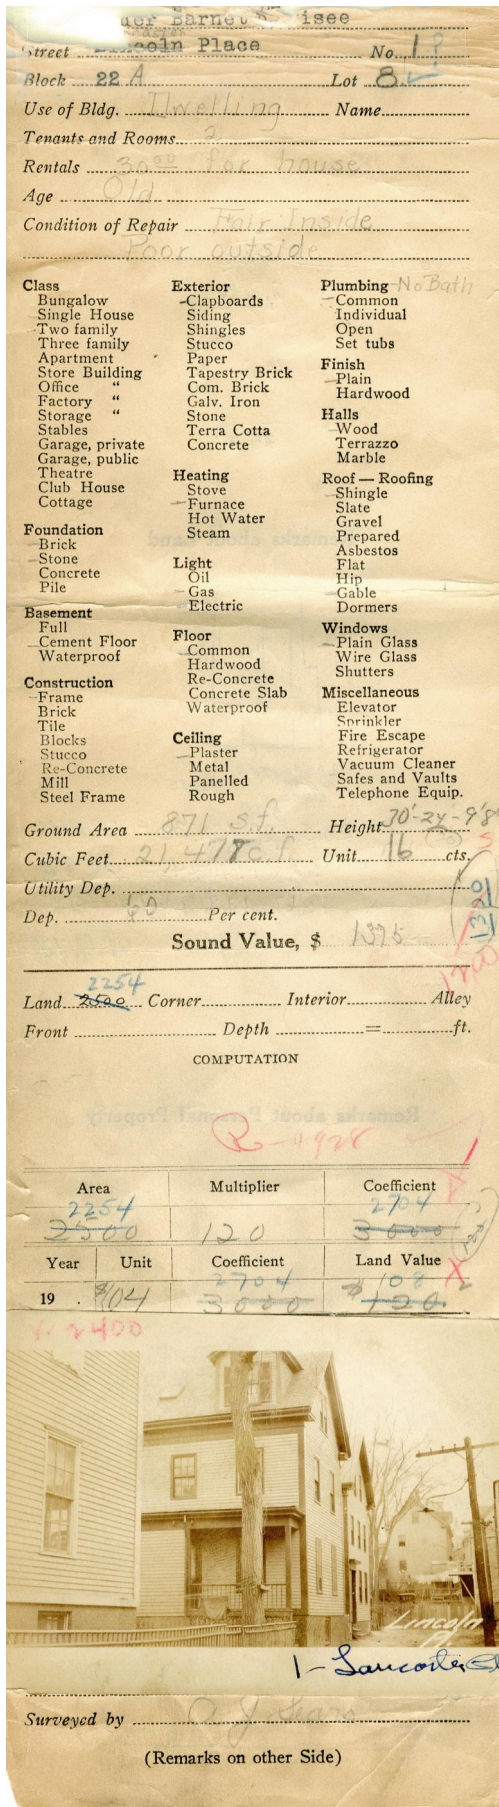 Barnet isee
Street Lincoln Place No. 1 ?
Block 22 A Lot 8
Use of Bldg. Dwelling Name
Tenants and Rooms 2
Rentals 30 00 for house
Age Old
Condition of Repair Fair Inside
Poor outside
Class
Bungalow
Single House
Two family
Three family
Apartment
Store Building
Office "
Factory "
Storage "
Stables
Garage, private
Garage, public
Theatre
Club House
Cottage
Foundation
Brick
Stone
Concrete
Pile
Basement
Full
Cement Floor
Waterproof
Construction
Frame
Brick
Tile
Blocks
Stucco
Re-Concrete
Mill
Steel Frame
Exterior
Clapboards
Siding
Shingles
Stucco
Paper
Tapestry Brick
Com. Brick
Galv. Iron
Stone
Terra Cotta
Concrete
Heating
Stove
Furnace
Hot Water
Steam
Light
Oil
Gas
Electric
Floor
Common
Hardwood
Re-Concrete
Concrete Slab
Waterproof
Ceiling
Plaster
Metal
Panelled
Rough
Plumbing - No Bath
Common
Individual
Open
Set tubs
Finish
Plain
Hardwood
Halls
Wood
Terrazzo
Marble
Roof — Roofing
Shingle
Slate
Gravel
Prepared
Asbestos
Flat
Hip
Gable
Dormers
Windows
Plain Glass
Wire Glass
Shutters
Miscellaneous
Elevator
Sprinkler
Fire Escape
Refrigerator
Vacuum Cleaner
Safes and Vaults
Telephone Equip.
Ground Area 871 s.f. Height 30'-24-9'8"
Cubic Feet 21,477 c.f. Unit 16 cts.
Utility Dep.
1320
Dep. 60 Per cent.
Sound Value, $ 1375
1200
2254
Land 2500 Corner Interior Alley
Front Depth = ft.
COMPUTATION
R-1928
Area Multiplier Coefficient
2254 2704
2500 120 3000
Year Unit Coefficient Land Value
2704 108
19 . $104 3000 $120.
2400
Lincoln
Pl.
1 - Lancaster
Surveyed by
(Remarks on other Side)